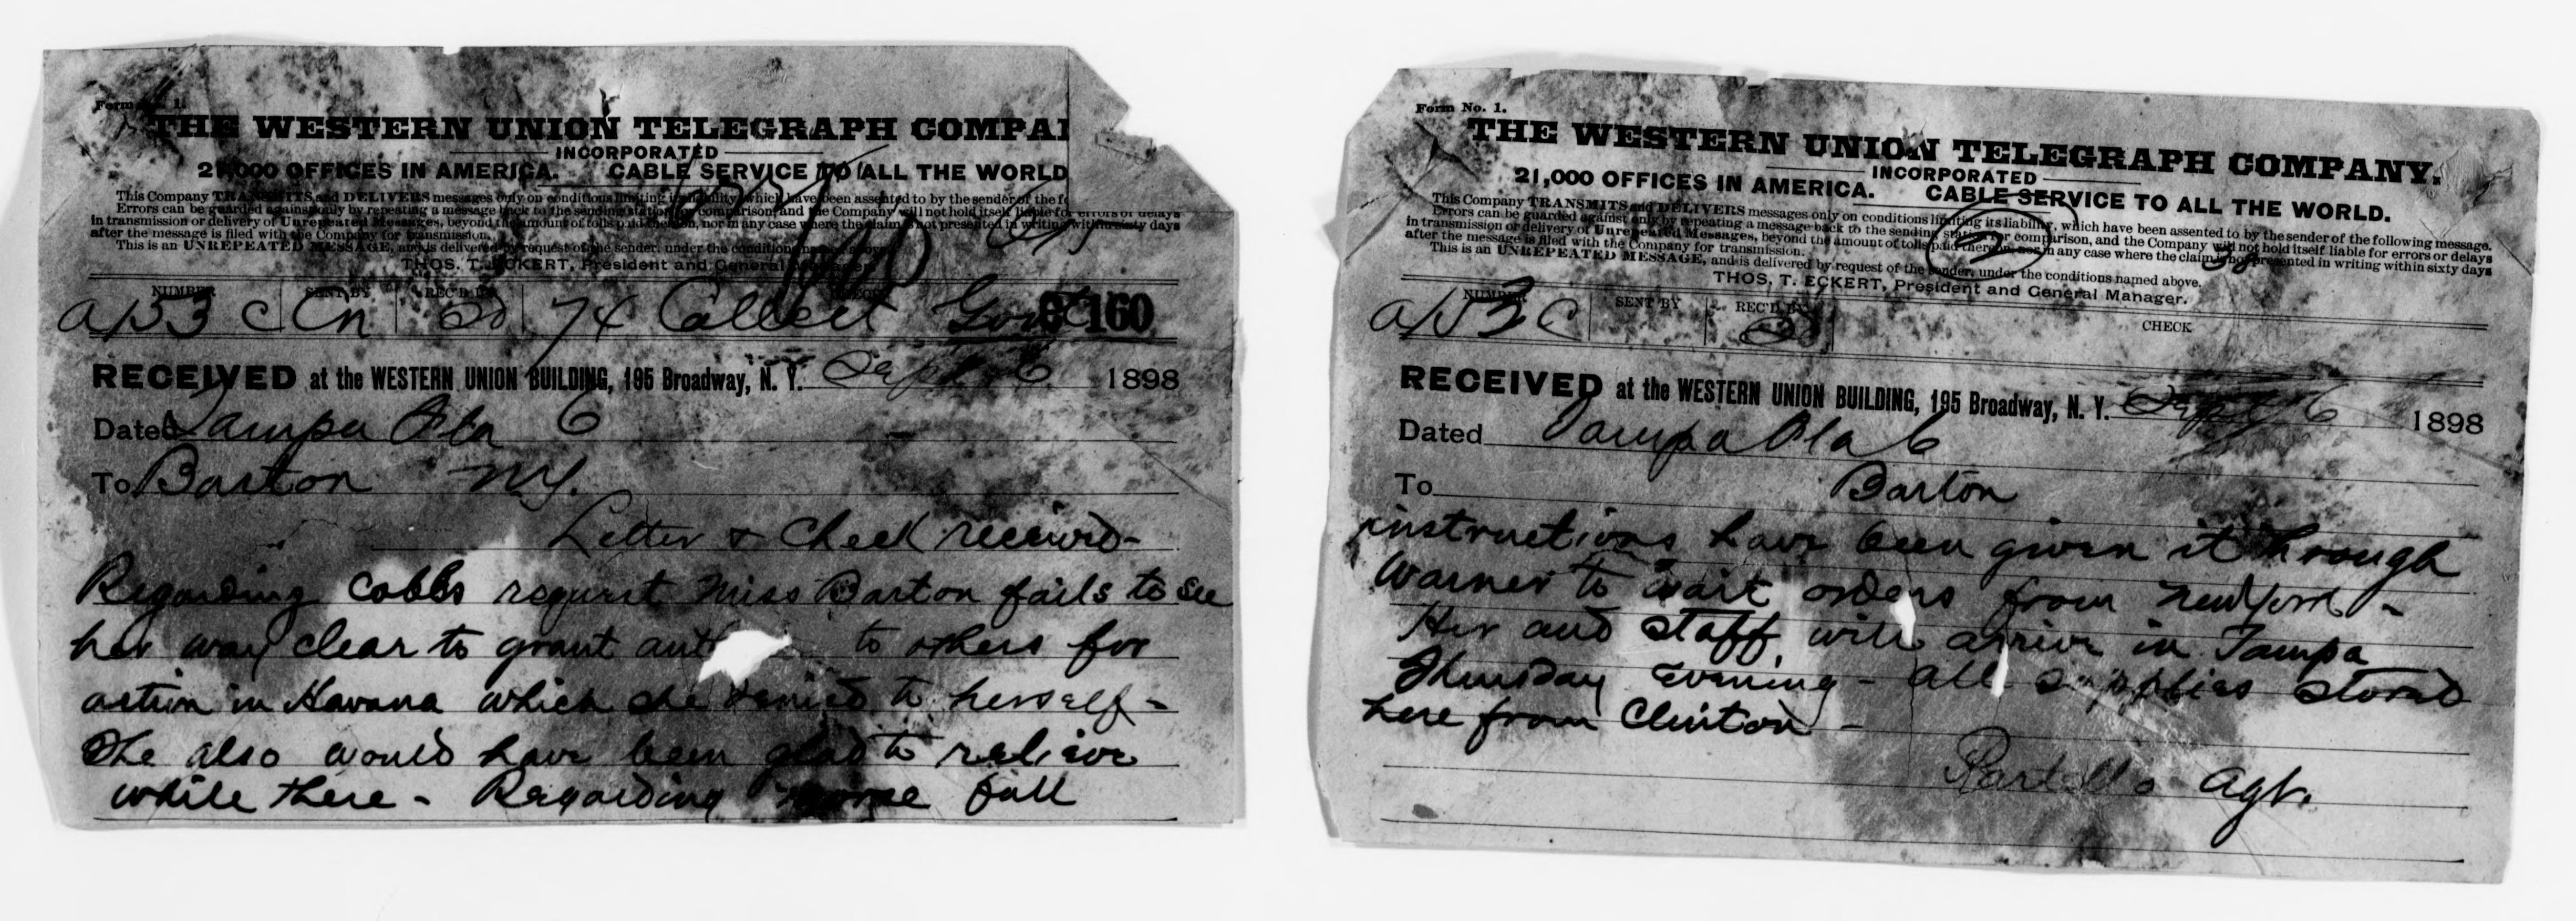 Form 1.
THE WESTERN UNION TELEGRAPH COMPA
INCORPORATED
21,000 OFFICES IN AMERICA. CABLE SERVICE TO ALL THE WORLD
This Company TRANSMITS and DELIVERS messages only on conditions limiting its liability, which have been assented to by the sender of the fo
Errors can be guarded against only by repeating a message back to the sending station for comparison, and the Company will not hold itself liable for errors or delays
in transmission or delivery of Unrepeated Messages, beyond the amount of tolls paid thereon, nor in any case where the claim is not presented in writing within sixty days
after the message is filed with the Company for transmission.
This is an UNREPEATED MESSAGE, and is delivered by request of the sender, under the conditions named above.
THOS. T. ECKERT, President and General Manager.
NUMBER SENT BY REC'D BY CHECK
a/53 C Cn 74 Collect Govt 160
RECEIVED at the WESTERN UNION BUILDING, 195 Broadway, N. Y. Sept 6 1898
Dated Tampa Fla 6
To Barton NY.
Letter & Check received-
Regarding Cobbs request Miss Barton fails to see
her way clear to grant auth to others for
action in Havana which she denied to herself-
She also would have been glad to relieve
while there - Regarding full
Form No. 1.
THE WESTERN UNION TELEGRAPH COMPANY.
INCORPORATED
21,000 OFFICES IN AMERICA. CABLE SERVICE TO ALL THE WORLD.
This Company TRANSMITS and DELIVERS messages only on conditions limiting its liability, which have been assented to by the sender of the following message.
Errors can be guarded against only by repeating a message back to the sending station for comparison, and the Company will not hold itself liable for errors or delays
in transmission or delivery of Unrepeated Messages, beyond the amount of tolls paid thereon, nor in any case where the claim is not presented in writing within sixty days
after the message is filed with the Company for transmission.
This is an UNREPEATED MESSAGE, and is delivered by request of the sender, under the conditions named above.
THOS. T. ECKERT, President and General Manager.
NUMBER SENT BY REC'D BY CHECK
a/53 C
2
RECEIVED at the WESTERN UNION BUILDING, 195 Broadway, N. Y. Sept 6 1898
Dated Tampa Fla 6
To Barton
instructions have been given it through
Warner to wait orders from New York -
Her and staff will arrive in Tampa
Thursday evening - all supplies stored
here from Clinton -
Partello Agt.